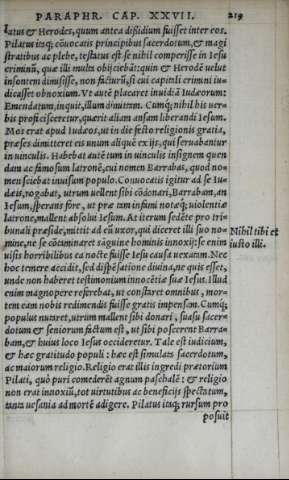 PARAPHR. CAP. XXVII. 219
latus & Herodes, quum antea dißidium fuisset inter eos.
Pilatus itaq; cōuocatis principibus sacerdotum, & magi
stratibus ac plebe, testatus est se nihil comperisse in Iesu
criminū, quæ illi multa obijciebāt: quin & Herodē uelut
insontem dimisisse, non facturū, si cui capitali crimini iu-
dicasset obnoxium. Vt autē placaret inuidiā Iudæorum:
Emendatum, inquit, illum dimittam. Cumq; nihil his uer-
bis proficisceretur, quærit aliam ansam liberandi Iesum.
Mos erat apud Iudæos, ut in die festo religionis gratia,
præses dimitteret eis unum aliquē ex ijs, qui seruabantur
in uinculis. Habebat autē tum in uinculis insignem quen
dam ac famosum latronē, cui nomen Barrabas, quod no-
men sciebat inuisum populo. Conuocatis igitur ad se Iu-
dæis, rogabat, utrum uellent sibi cōdonari, Barrabam, an
Iesum, sperans fore, ut præ tam infami notæq; uiolentiæ
latrone, mallent absolui Iesum. At iterum sedēte pro tri-
bunali præside, mittit ad eū uxor, qui diceret illi suo no-
mine, ne se cōtaminaret sāguine hominis innoxij: se enim
uisis horribilibus ea nocte fuisse Iesu causa uexatam. Nec
hoc temere accidit, sed dispēsatione diuina, ne quis esset,
unde non haberet testimonium innocētiæ suæ Iesus. Illud
enim magnopere referebat, ut constaret omnibus, mor-
tem eam nobis redimendis fuisse gratis impensam. Cumq;
populus nutaret, utrum mallent sibi donari, suasu sacer-
dotum & seniorum factum est, ut sibi poscerent Barra-
bam, & huius loco Iesus occideretur. Tale est iudicium,
& hæc gratitudo populi: hæc est simulata sacerdotum,
ac maiorum religio. Religio erat illis ingredi prætorium
Pilati, quò puri comederēt agnum paschalē: & religio
non erat innoxiū, tot uirtutibus ac beneficijs spectatum,
tanta uesania ad mortē adigere. Pilatus itaq; rursum pro
posuit
Nihil tibi et
iusto illi.